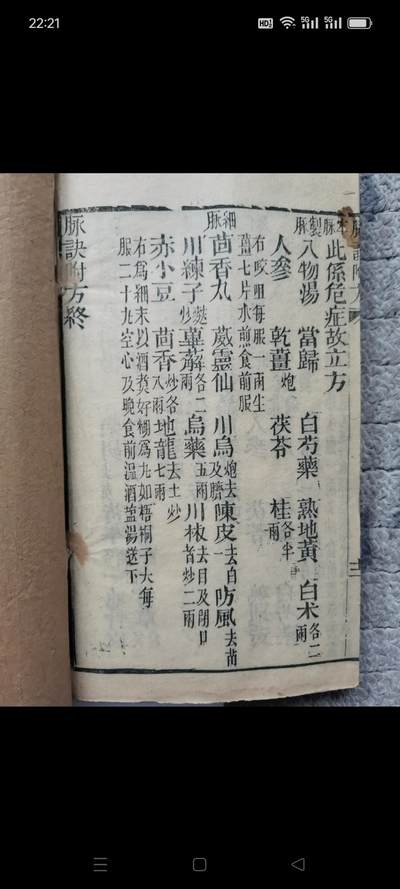 22:21
脉訣附方
十三
脉
此係危症故立方
製脉
八物湯 當歸 白芍藥 熟地黃 白术各二兩
人參 乾薑炮 茯苓 桂各半兩
右㕮咀每服一兩生
薑七片水煎食前服
細脉
茴香丸 葳靈仙 川烏炮去及臍 陳皮去白一 防風去苗
川練子炒 萆薢各二兩 烏藥五兩 川椒去目及閉口者炒二兩
赤小豆 茴香炒各八兩 地龍去土炒七兩
右爲細末以酒煑好糊爲丸如梧桐子大每
服二十九空心及晚食前溫酒盐湯送下
脉訣附方終